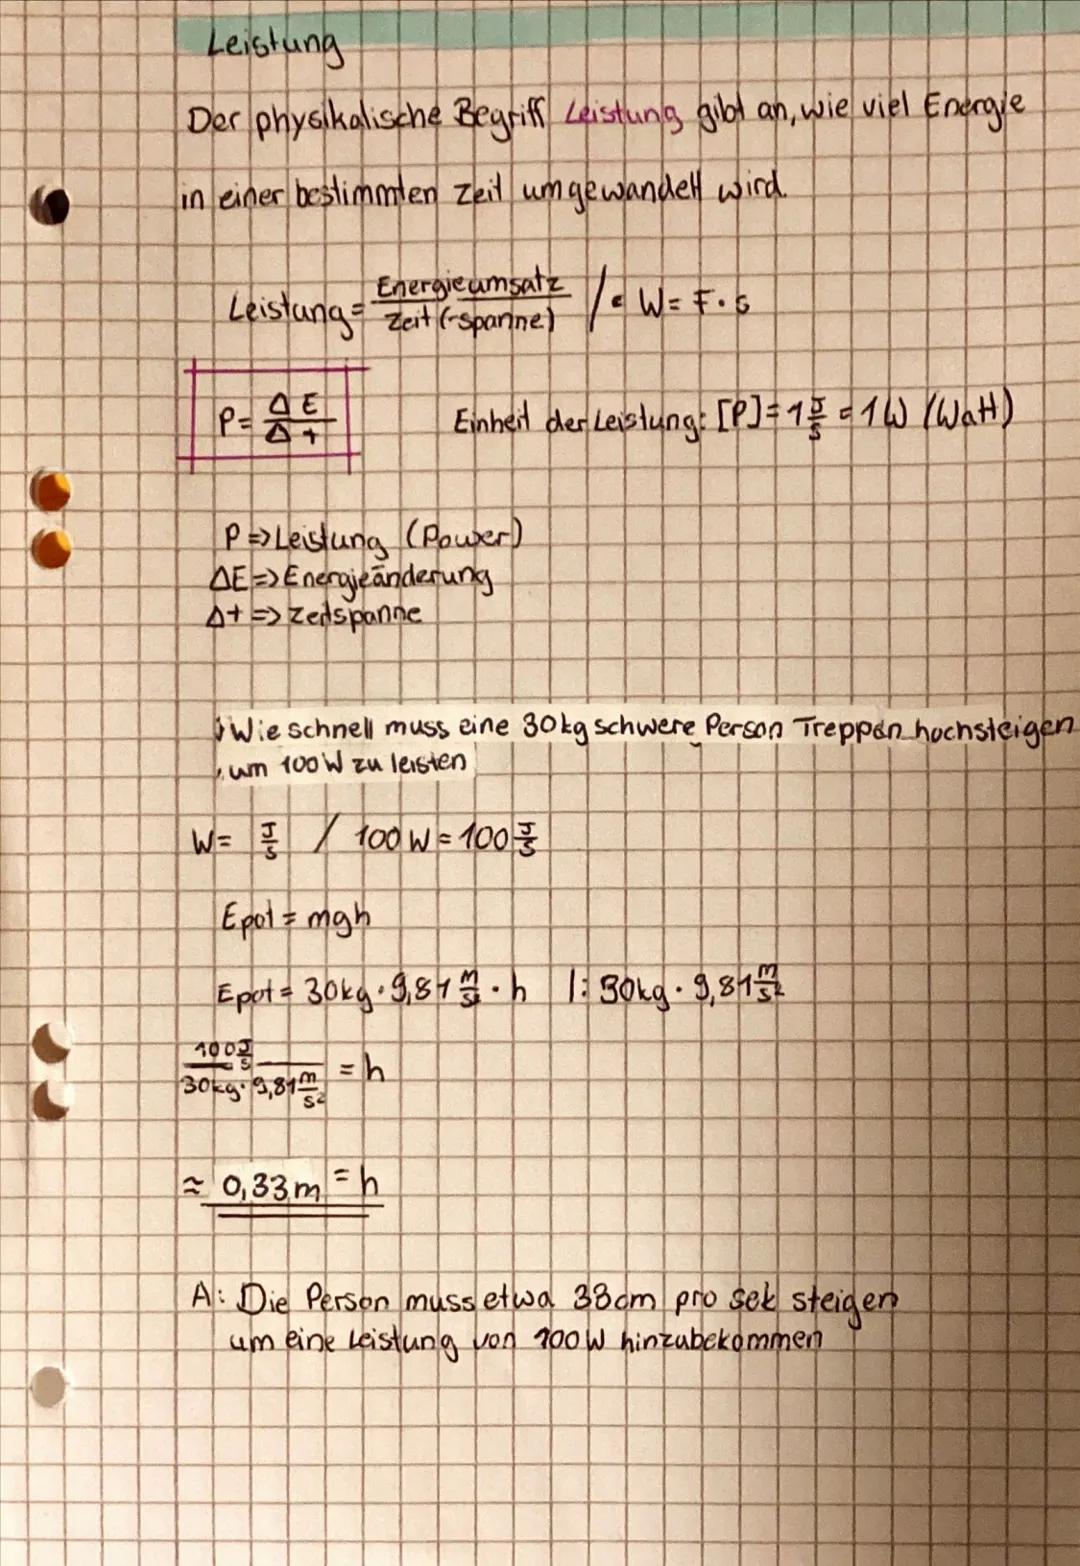 Leistung
Der physikalische Begriff Leistung gibt an, wie viel Energie
in einer bestimmten Zeit umgewandelt wird.
Leistung = Energieumsatz / Zeit(-spanne) / = W = F · s
P = ΔE / Δt
Einheit der Leistung: [P] = 1 J/s = 1 W (Watt)
P => Leistung (Power)
ΔE => Energieänderung
Δt => Zeitspanne
Wie schnell muss eine 30kg schwere Person Treppen hochsteigen
, um 100 W zu leisten
W = J/s / 100 W = 100 J/s
Epot = mgh
Epot = 30kg · 9,81 m/s² · h |: 30kg · 9,81 m/s²
100 J/s / 30kg · 9,81 m/s² = h
≈ 0,33 m = h
A: Die Person muss etwa 33cm pro sek steigen
um eine Leistung von 100 W hinzubekommen